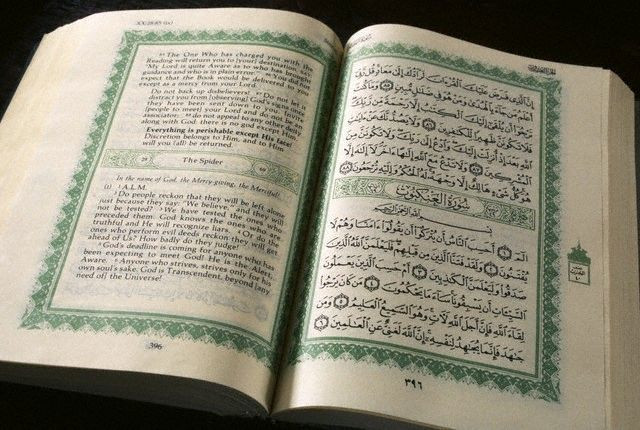 XX:28:85 (ix)
The One Who has charged you with the
Reading will return you to [your] destination.
"My Lord is quite Aware as to who has brought
guidance and who is in plain error." 86 You did not
expect that the Book would be delivered to you
except as a mercy from your Lord.
Do not back up disbelievers! 87 Do not let it
distract you from [observing] God's signs once
they have been sent down to you. Invite
[people to meet] your Lord and do not be an
associator; 88 do not appeal to any other deity
along with God: there is no god except Him!
Everything is perishable except His face!
Discretion belongs to Him, and to Him
will you [all] be returned.
29 The Spider 69
In the name of God, the Mercy-giving, the Merciful!
(I) 1 A.L.M.
2 Do people reckon that they will be left alone
just because they say: "We believe," and they will
not be tested? 3 We have tested the ones who
preceded them. God knows the ones who are
truthful and He will recognize liars. 4 Or do the
ones who perform evil deeds reckon they will get
ahead of Us? How badly do they judge!
5 God's deadline is coming for anyone who has
been expecting to meet God! He is the Alert,
Aware. 6 Anyone who strives, strives only for his
own soul's sake. God is Transcendent, beyond [any
need of] the Universe!
396
إِنَّ ٱلَّذِى فَرَضَ عَلَيْكَ ٱلْقُرْءَانَ لَرَآدُّكَ إِلَىٰ مَعَادٍ قُل رَّبِّى
أَعْلَمُ مَن جَآءَ بِٱلْهُدَىٰ وَمَنْ هُوَ فِى ضَلَٰلٍ مُّبِينٍ ٨٥ وَمَا كُنتَ
تَرْجُوٓا۟ أَن يُلْقَىٰٓ إِلَيْكَ ٱلْكِتَٰبُ إِلَّا رَحْمَةً مِّن رَّبِّكَ
فَلَا تَكُونَنَّ ظَهِيرًا لِّلْكَٰفِرِينَ ٨٦ وَلَا يَصُدُّنَّكَ عَنْ ءَايَٰتِ
ٱللَّهِ بَعْدَ إِذْ أُنزِلَتْ إِلَيْكَ وَٱدْعُ إِلَىٰ رَبِّكَ وَلَا تَكُونَنَّ مِنَ
ٱلْمُشْرِكِينَ ٨٧ وَلَا تَدْعُ مَعَ ٱللَّهِ إِلَٰهًا ءَاخَرَ لَآ إِلَٰهَ إِلَّا
هُوَ كُلُّ شَىْءٍ هَالِكٌ إِلَّا وَجْهَهُۥ لَهُ ٱلْحُكْمُ وَإِلَيْهِ تُرْجَعُونَ ٨٨
سُورَةُ الْعَنْكَبُوتِ
بِسْمِ ٱللَّهِ ٱلرَّحْمَٰنِ ٱلرَّحِيمِ
الٓمٓ ١ أَحَسِبَ ٱلنَّاسُ أَن يُتْرَكُوٓا۟ أَن يَقُولُوٓا۟ ءَامَنَّا وَهُمْ لَا
يُفْتَنُونَ ٢ وَلَقَدْ فَتَنَّا ٱلَّذِينَ مِن قَبْلِهِمْ فَلَيَعْلَمَنَّ ٱللَّهُ ٱلَّذِينَ
صَدَقُوا۟ وَلَيَعْلَمَنَّ ٱلْكَٰذِبِينَ ٣ أَمْ حَسِبَ ٱلَّذِينَ يَعْمَلُونَ
ٱلسَّيِّـَٔاتِ أَن يَسْبِقُونَا سَآءَ مَا يَحْكُمُونَ ٤ مَن كَانَ يَرْجُوا۟
لِقَآءَ ٱللَّهِ فَإِنَّ أَجَلَ ٱللَّهِ لَـَٔاتٍ وَهُوَ ٱلسَّمِيعُ ٱلْعَلِيمُ ٥ وَمَن
جَٰهَدَ فَإِنَّمَا يُجَٰهِدُ لِنَفْسِهِۦٓ إِنَّ ٱللَّهَ لَغَنِىٌّ عَنِ ٱلْعَٰلَمِينَ ٦
٣٩٦